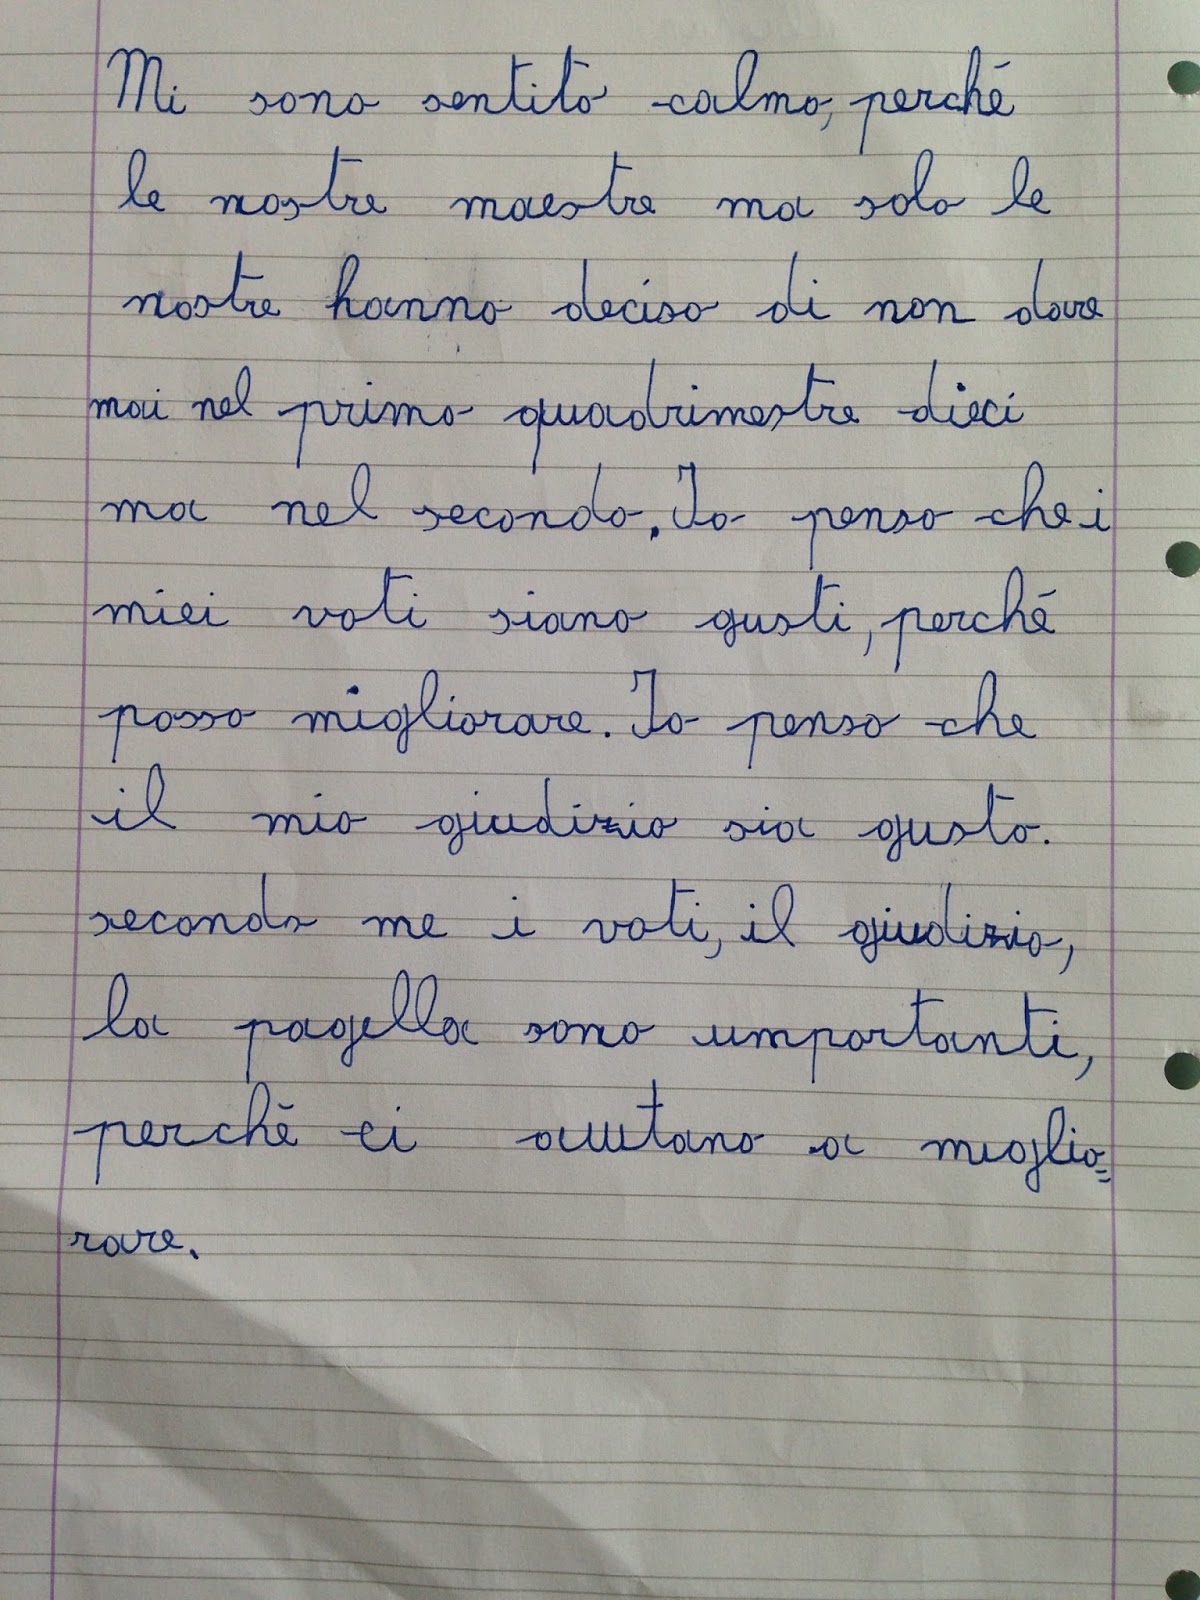 Mi sono sentito calmo, perché
le nostre maestre ma solo le
nostre hanno deciso di non dare
mai nel primo quadrimestre dieci
ma nel secondo. Io penso che i
miei voti siano gusti, perché
posso migliorare. Io penso che
il mio giudizio sia gusto.
secondo me i voti, il giudizio,
la pagella sono importanti,
perché ci aiutano a miglio=
rare.